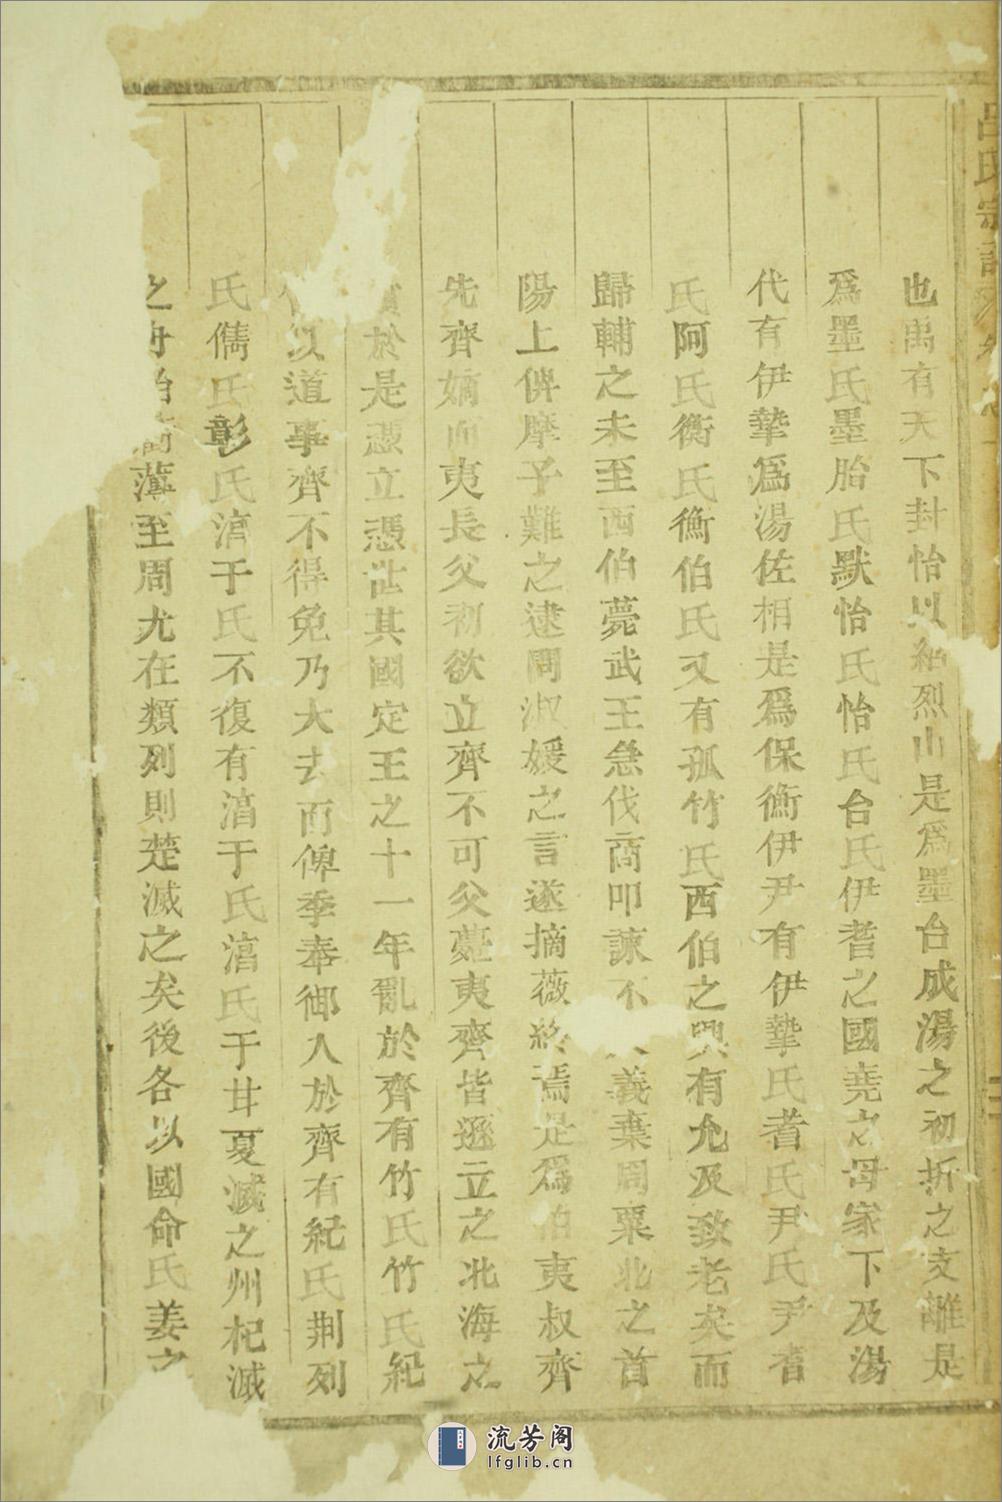 呂氏宗譜 卷
也禹有天下封怡以紹烈山是爲墨台成湯之初折之支離是
爲墨氏墨胎氏默怡氏怡氏台氏伊耆之國堯之母家下及湯
代有伊摯爲湯佐相是爲保衡伊尹有伊摯氏耆氏尹氏尹耆
氏阿氏衡氏衡伯氏又有孤竹氏西伯之興有允及致老矣而
歸輔之未至西伯薨武王急伐商叩諫不義棄周粟北之首
陽上俾摩子難之逮聞淑媛之言遂摘薇終焉是爲伯夷叔齊
先齊嫡而夷長父初欲立齊不可父薨夷齊皆遜立之北海之
於是憑立憑世其國定王之十一年亂於齊有竹氏竹氏紀
以道事齊不得免乃大去而俾季奉鄉入於齊有紀氏荆列
氏儁氏彰氏淯于氏不復有淯于氏淯氏于甘夏滅之州杞滅
之舟薄至周尤在類列則楚滅之矣後各以國命氏姜之
流芳阁
lfglib.cn